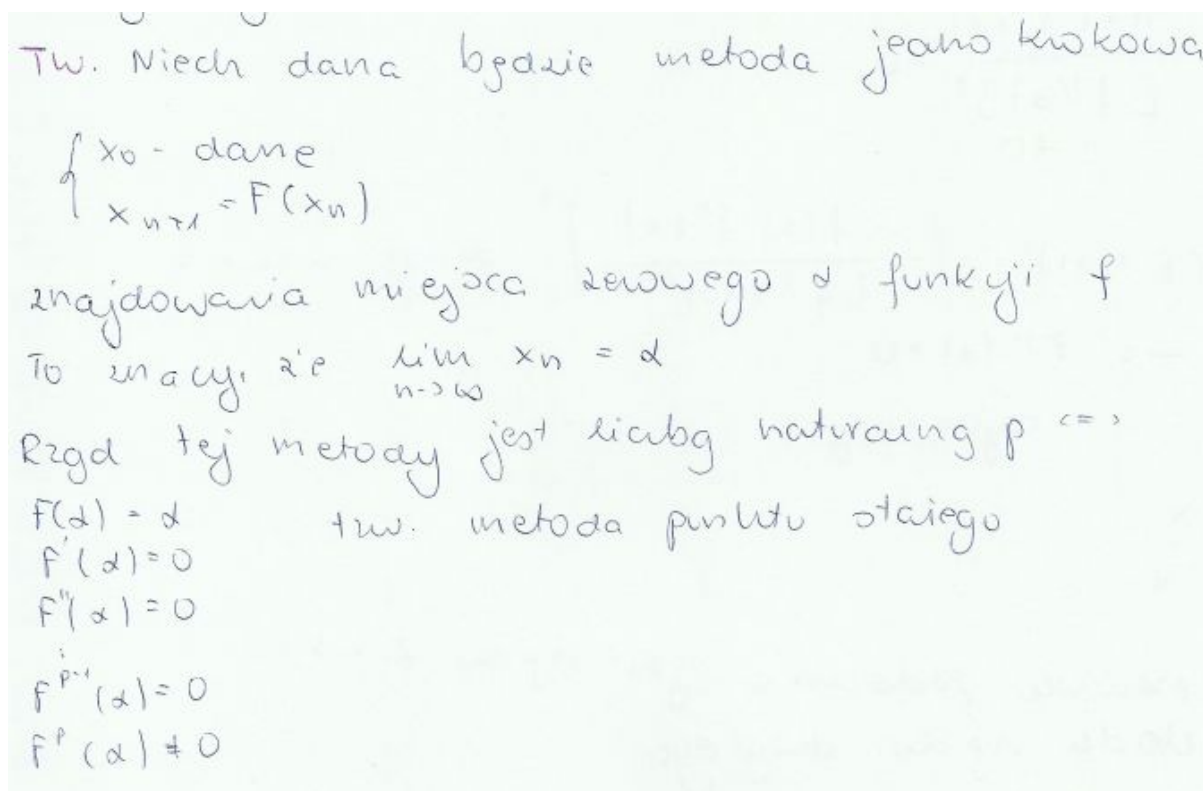 Tw. Niech dana będzie metoda jedno krokowa
{ x0 - dane
x n+1 = F(xn)
znajdowania miejsca zerowego α funkcji f
To znaczy, że lim n->∞ xn = α
Rząd tej metody jest liczbą naturalną p <=>
F(α) = α tzw. metoda punktu stałego
F'(α) = 0
F''(α) = 0
⋮
F^p-1 (α) = 0
F^p (α) ≠ 0